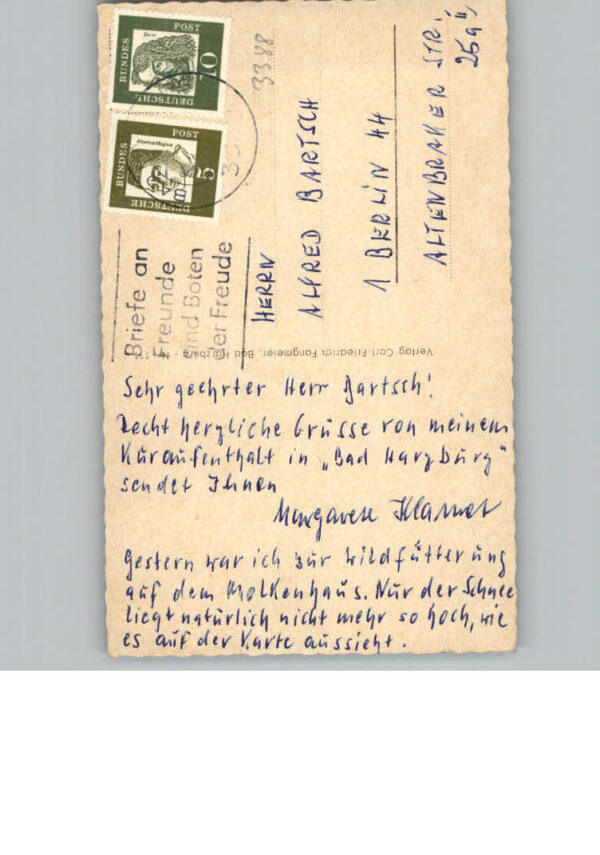 Sehr geehrter Herr Bartsch!
Recht herzliche Grüsse von meinem
Kuraufenthalt in „Bad Harzburg"
sendet Ihnen
Margarete
Gestern war ich zur Wildfütterung
auf dem Molkenhaus. Nur der Schnee
liegt natürlich nicht mehr so hoch, wie
es auf der Karte aussieht.
Verlag Carl Friedrich Fangmeier, Bad Harzburg
HERRN
ALFRED BARTSCH
1 BERLIN 44
ALTENBRAKER STR.
25a II
Briefe an
Freunde
sind Boten
der Freude
3388
DEUTSCHE
BUNDES
POST
10
DEUTSCHE
BUNDES
POST
Albertus Magnus
5